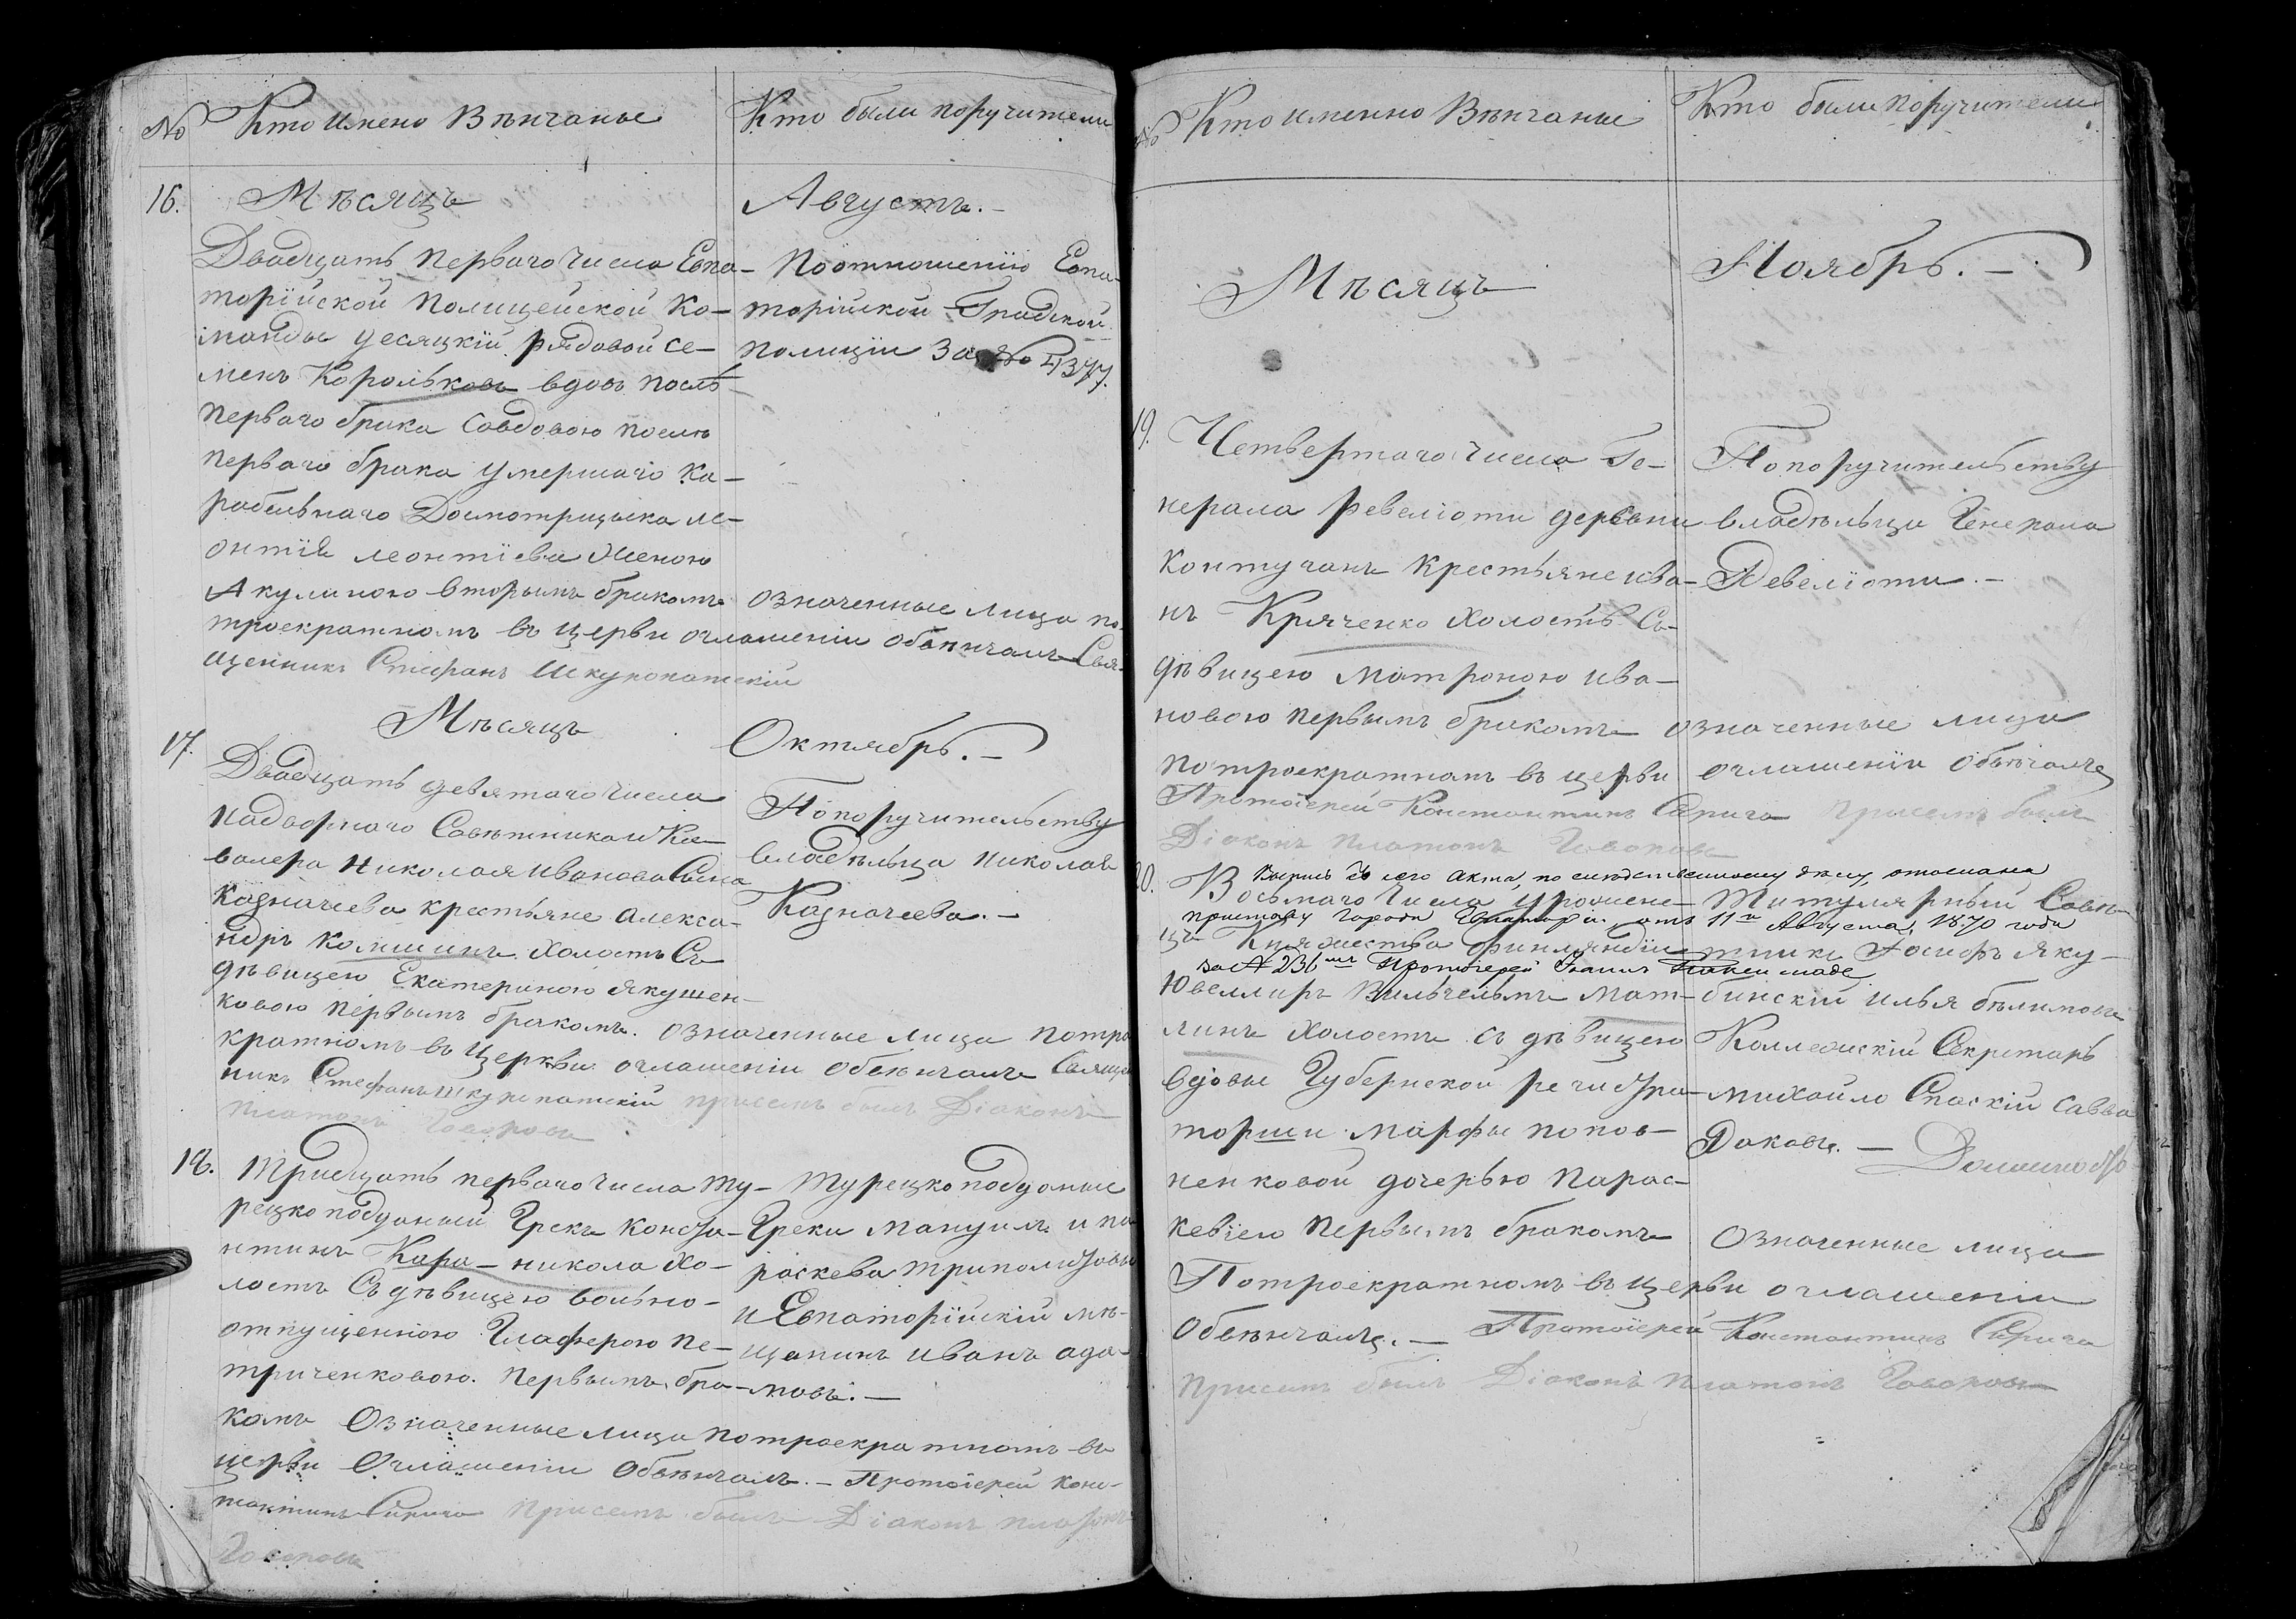 № Кто имено Вѣнчаные
Кто были поручители
16. Мѣсяцъ
Августъ. —
Двадцать перваго числа Евпа-
торійской Полицейской Ко-
манды десяцкій рядовой Се-
менъ Корольковъ вдовъ послѣ
перваго брака совдовою послѣ
перваго брака умершаго Ка-
рабельнаго Досмотрщыка ле-
онтія леонтіева женою
Акулиною вторымъ бракомъ
По отношенію Евпа-
торійской Градской
полиціи За № 4377.
означенные лица по
троекратномъ въ церви оглашеніи обвѣнчалъ Свя-
щенникъ Стефанъ
17. Мѣсяцъ
Октябрь. —
Двадцать девятаго числа
Надворнаго Совѣтника и Ка-
валера Николая Иванова Сына
Казначеева крестьяне Алекса-
ндръ Комшинъ холостъ Съ
дѣвицею Екатериною Якушен-
ковою первымъ бракомъ.
По поручительству
владѣльца Николая
Казначеева. —
означенные лица потро
кратномъ въ Церкви оглашеніи обвѣнчалъ Священ
никъ Стефанъ при семъ былъ Діаконъ
Платонъ Говоровъ
18. Тридцать перваго числа Ту-
рецкоподданый Грекъ Конста-
нтинъ Кара-никола Хо-
лостъ Съ дѣвицею вольно-
отпущенною Глаферою Пе-
триченковою. первымъ бра-
Турецкоподданые
Греки Мануилъ и па
раскева Триполитовы
и Евпаторійскій мѣ-
щанинъ Иванъ Ада-
мовъ. —
комъ Означенные лица потроекратномъ въ
церви Оглашеніи обвѣнчалъ. — Протоіерей Конс-
тантинъ Спиро при семъ былъ Діаконъ Платонъ
Говоровъ
№ Кто именно Вѣнчаные
Кто были поручители
Мѣсяцъ
Ноябрь. —
19. Четвертаго числа Ге-
нерала Ревеліоти деревни
Контуганъ крестьяне ива-
нъ Кряченко холостъ Съ
дѣвицею Матроною Ива-
новою первымъ бракомъ
По поручительству
владѣльца Генерала
Ревеліоти. —
означенные лица
потроекратномъ въ церви оглашеніи обвѣнчалъ
Протоіерей Константинъ Спиро при семъ былъ
Діаконъ Платонъ Говоровъ
Выпись съ сего акта, по слѣдственному дѣлу, отослана
20. Восьмаго Числа урожене-
Титулярный Совѣ-
приставу города Евпаторіи, отъ 11го Августа, 1870 года
цъ Княжества Финляндіи
тникъ Іосифъ Яку-
за № 236мъ Протоіерей
Ювеллиръ Вильгельмъ Мат-
линъ холостъ съ дѣвицею
вдовы Губернской регистра-
торши Марфы Попов-
ненковой дочерью Парас-
кевіею первымъ бракомъ
бинскій Илья Бѣлимовъ
Коллежскій Секретарь
Михайло Спаскій Савва
Раковъ. —
Означенные лица
Потроекратномъ въ церви оглашеніи
обвѣнчалъ. — Протоіерей Константинъ Спиро
при семъ былъ Діаконъ Платонъ Говоровъ